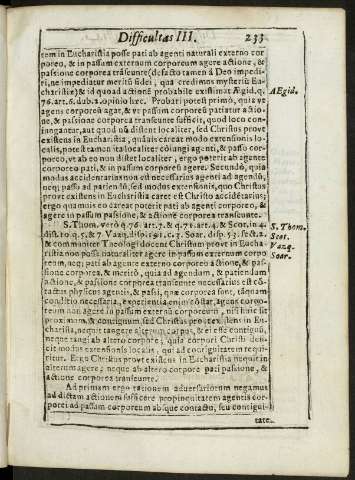 Difficultas III. 233
tem in Eucharistia posse pati ab agenti naturali externo cor
poreo, & in passum externum corporeum agere actione, &
passione corporea träseunte (defacto tamen à Deo impedi-
ri, ne impediatur meritū fidei, qua credimus mysteriū Eu-
charistiæ) & id quoad actionē probabile existimat Ægid. q.
76. art. 6. dub. 2. opinio hæc. Probari potest primò, quia ve
agens corporeū agat, & vt passum corporeū patiatur actio-
ne, & passione corporea transeunte sufficit, quod loco con-
jungantur, aut quod nō distent localiter, sed Christus prout
existens in Eucharistia, quāuis careat modo extensionis lo-
calis, potest tamen ita localiter cōiungi agenti, & passo cor-
poreo, vt ab eo non distet localiter, ergo poterit ab agente
corporeo pati, & in passum corporeū agere. Secundò, quia
modus accidentarius non est necessarius agenti ad agendū,
neq; passo ad patiendū, sed modus extensionis, quo Christus
prout existens in Eucharistia caret est Christo accidētarius;
ergo quamuis eo careat poterit pati ab agenti corporeo, &
agere in passum passione, & actione corporea transeunte.
S. Thom. verò q. 76. art. 7. & q. 81. art. 4. & Scot. in 4.
dist. 10. q. 5. & 7. Vazq. disp. 191. c. 3. Soar. disp. 53. sect. 2.
& communiter Theologi docent Christum prout in Eucha-
ristia non posse naturaliter agere in passum externum corpo
reum, neq; pati ab agente externo corporeo actione, & pas-
sione corporea, & meritò, quia ad agendum, & patiendum
actione, & passione corporea transeunte necessarius est cō-
tactus physicus agentis, & passi, quæ corporea sunt, tāquam
conditio necessaria, experientia enim cōstat, agens corpo-
reum non agere in passum externū corporeum, nisi huic sit
proximum, & contiguum, sed Christus prout existens in Eu-
charistia, nequit tangere alterum corpus, & ei esse contiguū,
neque tangi ab altero corpore; quia corpori Christi defi-
cit modus extensionis localis, qui ad contiguitatem requi-
ritur. Ergo Christus prout existens in Eucharistia nequit in
alterum agere; neque ab altero corpore pati passione, &
actione corporea transeunte.
Ad primam ergo rationem aduersariorum negamus
ad dictam actionem sufficere propinquitatem agentis cor-
porei ad passum corporeum absque contactu, seu contigui-
tate.
AEgid.
S. Thom.
Scot.
Vazq.
Soar.